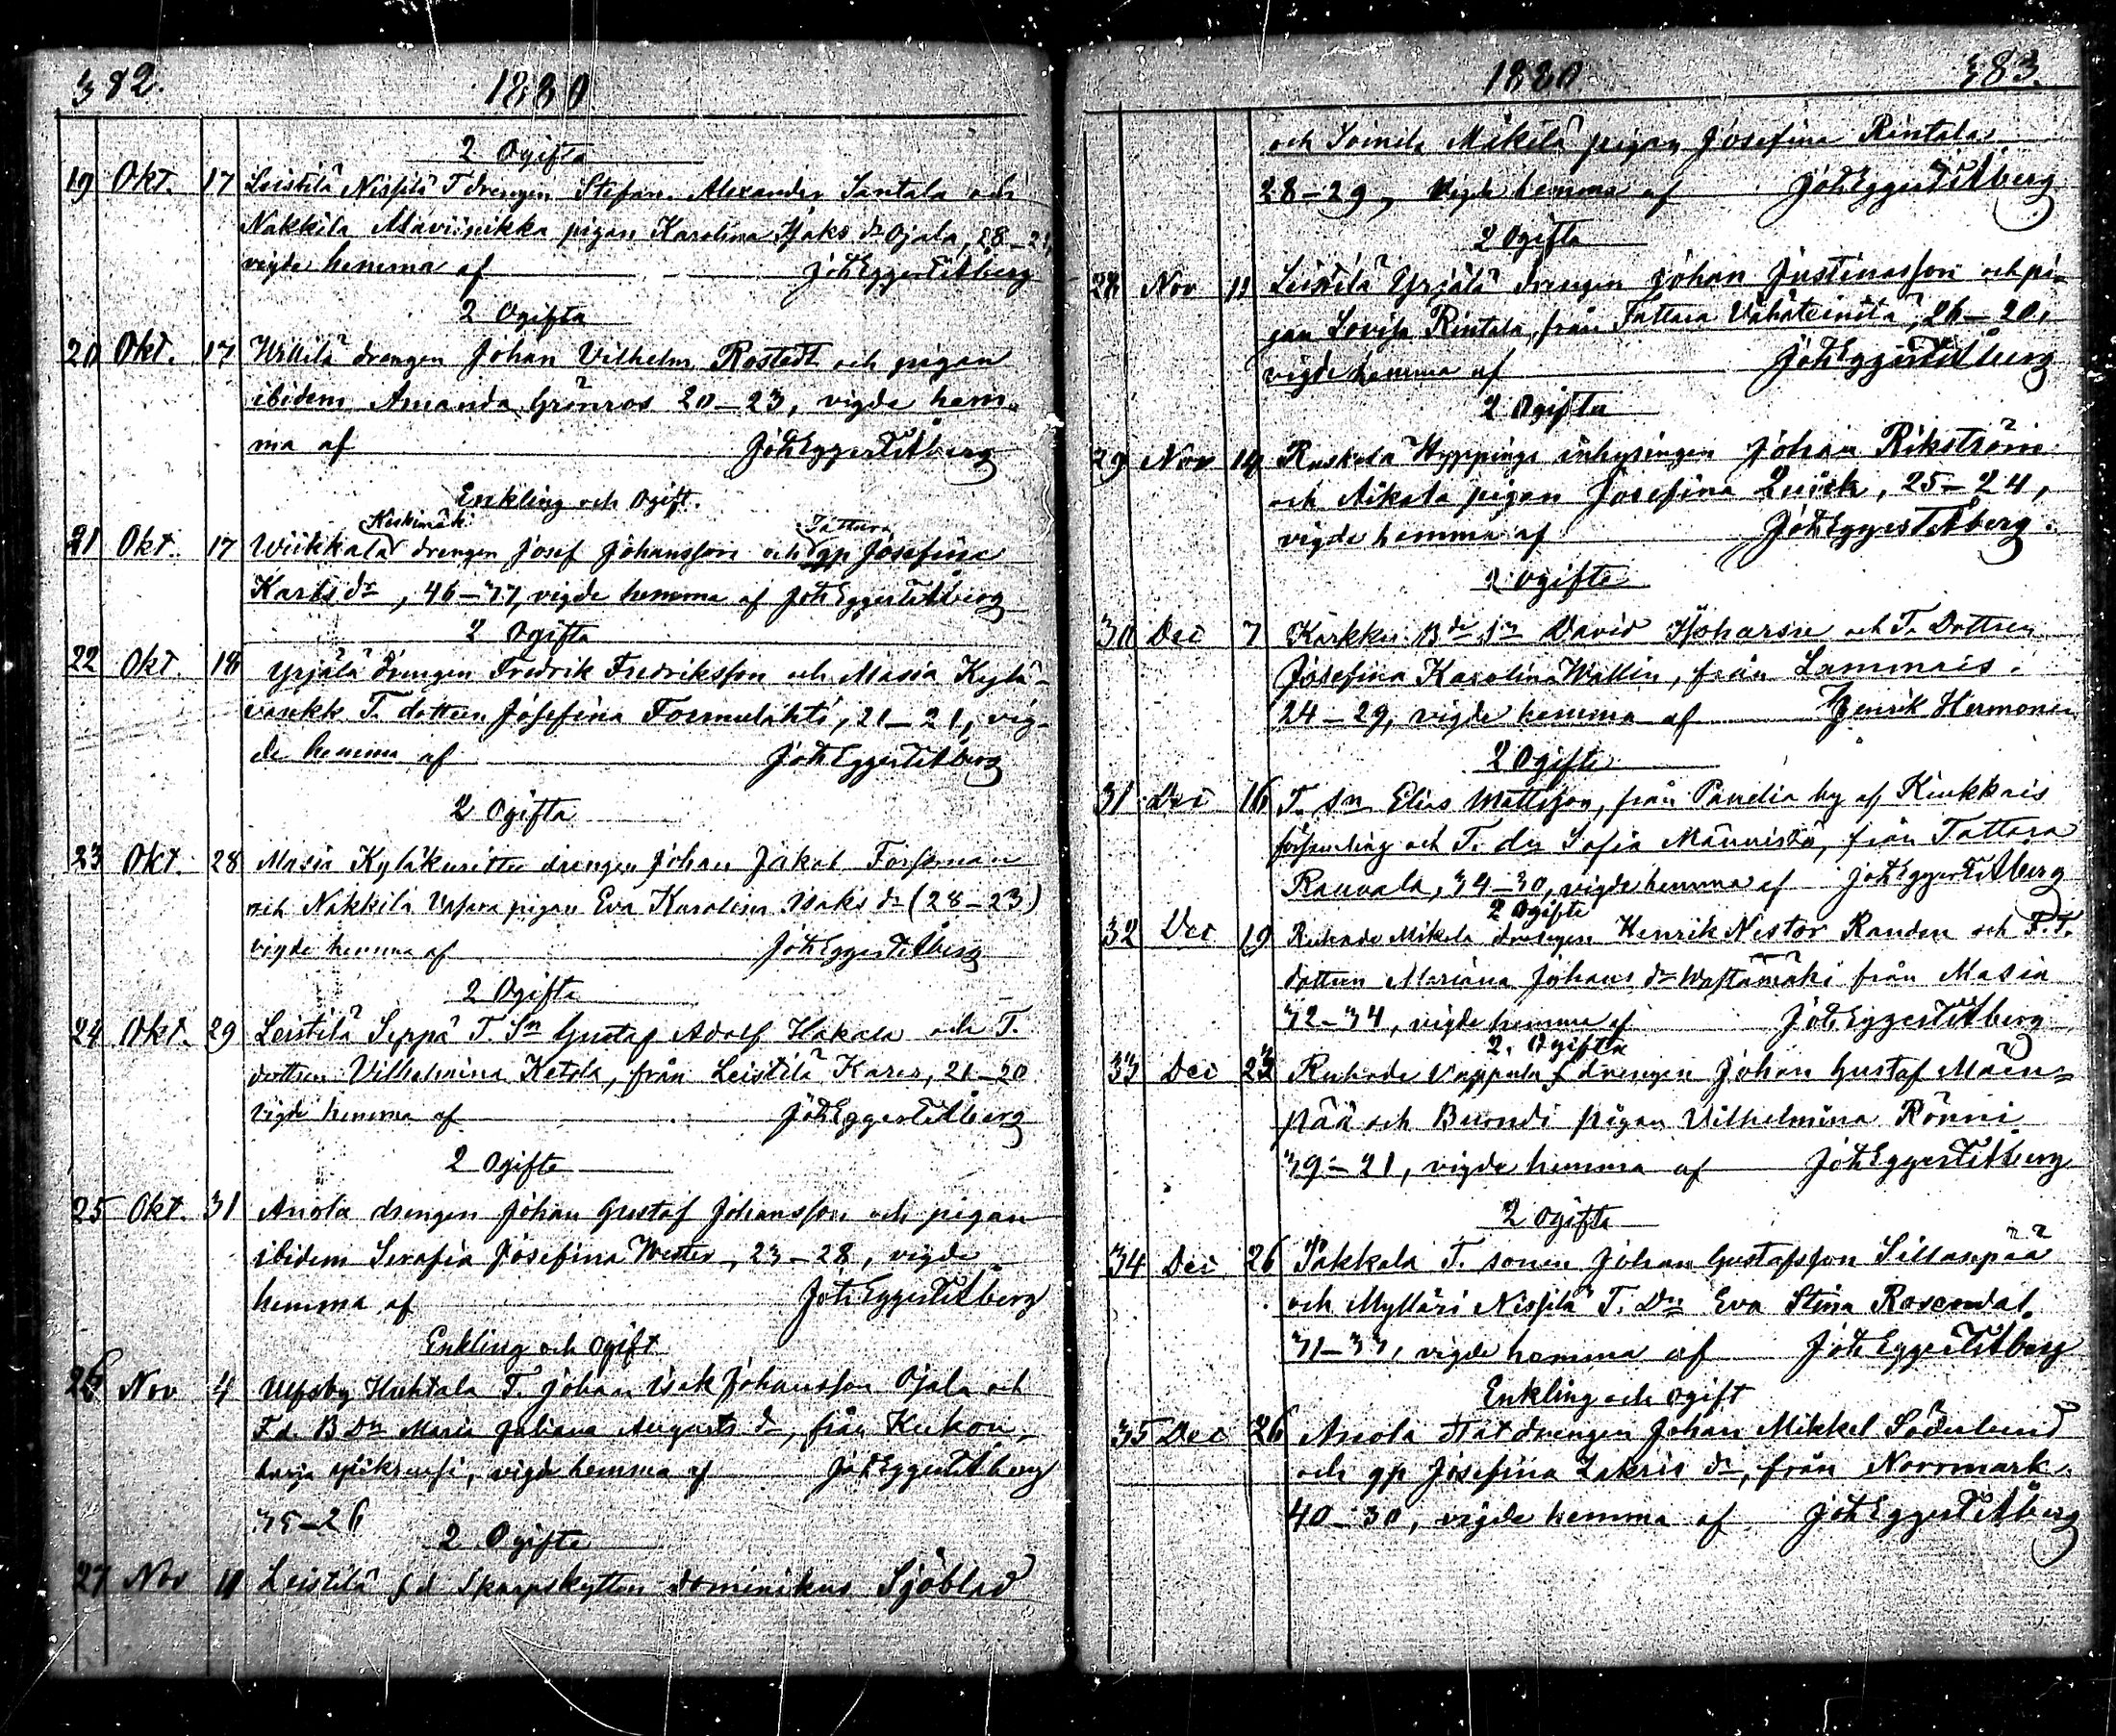 382. 1880
2 Ogifta
19 Okt. 17 Leistilä Nissilä T drengen Stefan Alexander Santala och
Nakkila Alaviinikka pigan Karolina Isaks dr Ojala, 28–21,
vigde hemma af Joh Eggert Åberg
2 Ogifta
20 Okt. 17 Willilä drengen Johan Vilhelm Rostedt och pigan
ibidem Amanda Grönros 20–23, vigde hem-
ma af Joh Eggert Åberg
Enkling och Ogift.
Keskimäk Tattara
21 Okt. 17 Wiikkala drengen Josef Johansson och gp Josefina
Karls dr, 46–37, vigde hemma af Joh Eggert Åberg
2 Ogifta
22 Okt. 18 Yrjälä drengen Fredrik Fredriksson och Masia Kylä-
T. dottren Josefina Formulahti, 21–21, vig-
de hemma af Joh Eggert Åberg
2 Ogifta
23 Okt. 28 Masia drengen Johan Jakob Forssman
och Nakkila pigan Eva Karolina Isaks dr (28–23)
vigde hemma af Joh Eggert Åberg
2 Ogifta
24 Okt. 29 Leistilä Seppä T. Sn Gustaf Adolf Hakala och T.
dottren Vilhelmina Ketola, från Leistilä Kares, 21–20
vigde hemma af Joh Eggert Åberg
2 Ogifta
25 Okt. 31 Anola drengen Johan Gustaf Johansson och pigan
ibidem Serafia Josefina Wester, 23–28, vigde
hemma af Joh Eggert Åberg
Enkling och Ogift
26 Nov 4 Ulfsby Huhtala T. Johan Isak Johansson Ojala och
Fd. B Dr Maria Juliana Augusts dr, från Kukon-
harja, vigde hemma af Joh Eggert Åberg
35–26
2 Ogifta
27 Nov 11 Leistilä fd Skarpskytten Dominikus Sjöblad
1880 383.
och Soinila Mikilä pigan Josefina Rintala
28–29, Vigde hemma af Joh Eggert Åberg
2 Ogifta
28 Nov 11 Leistilä Yrjälä drengen Johan Justinasson och pi-
gan Lovisa Rintala, från Tattara Vähäteinilä, 26–20,
vigde hemma af Joh Eggert Åberg
2 Ogifta
29 Nov 14 Ruskela Hyppingi inhysingen Johan Rikström
och Aikala pigan Josefina Quick, 25–24,
vigde hemma af Joh Eggert Åberg.
2 Ogifta
30 Dec 7 Karkku Bde Sn David och T. Dottren
Josefina Karolina Wallin, från Lammais.
24–29, vigde hemma af Henrik Hermonen
2 Ogifta
31 Dec 16 T. Sn Elias Mattsson, från Panelia by af Kiukkais
församling och T. dr Sofia Männistö, från Tattara
Rauvala, 34–30, vigde hemma af Joh Eggert Åberg
2 Ogifta
32 Dec 19 Ruhade Mikola drengen Henrik Nestor Randen och F. T.
dottren Mariana Johans dr från Masia
32–34, vigde hemma af Joh Eggert Åberg
2 Ogifta
33 Dec 23 Ruhade Vappula drengen Johan Gustaf Mäen-
pää och Buondi pigan Vilhelmina Rönni
39–21, vigde hemma af Joh Eggert Åberg
2 Ogifta
34 Dec 26 Pakkala T. sonen Johan Gustafsson Sillanpää
och Mylläri Nissilä T. Dr Eva Stina Rosendal.
31–33, vigde hemma af Joh Eggert Åberg
Enkling och ogift
35 Dec 26 Anola statdrengen Johan Mikkel Söderlund
och gp Josefina Zakris dr, från Norrmark.
40–30, vigde hemma af Joh Eggert Åberg